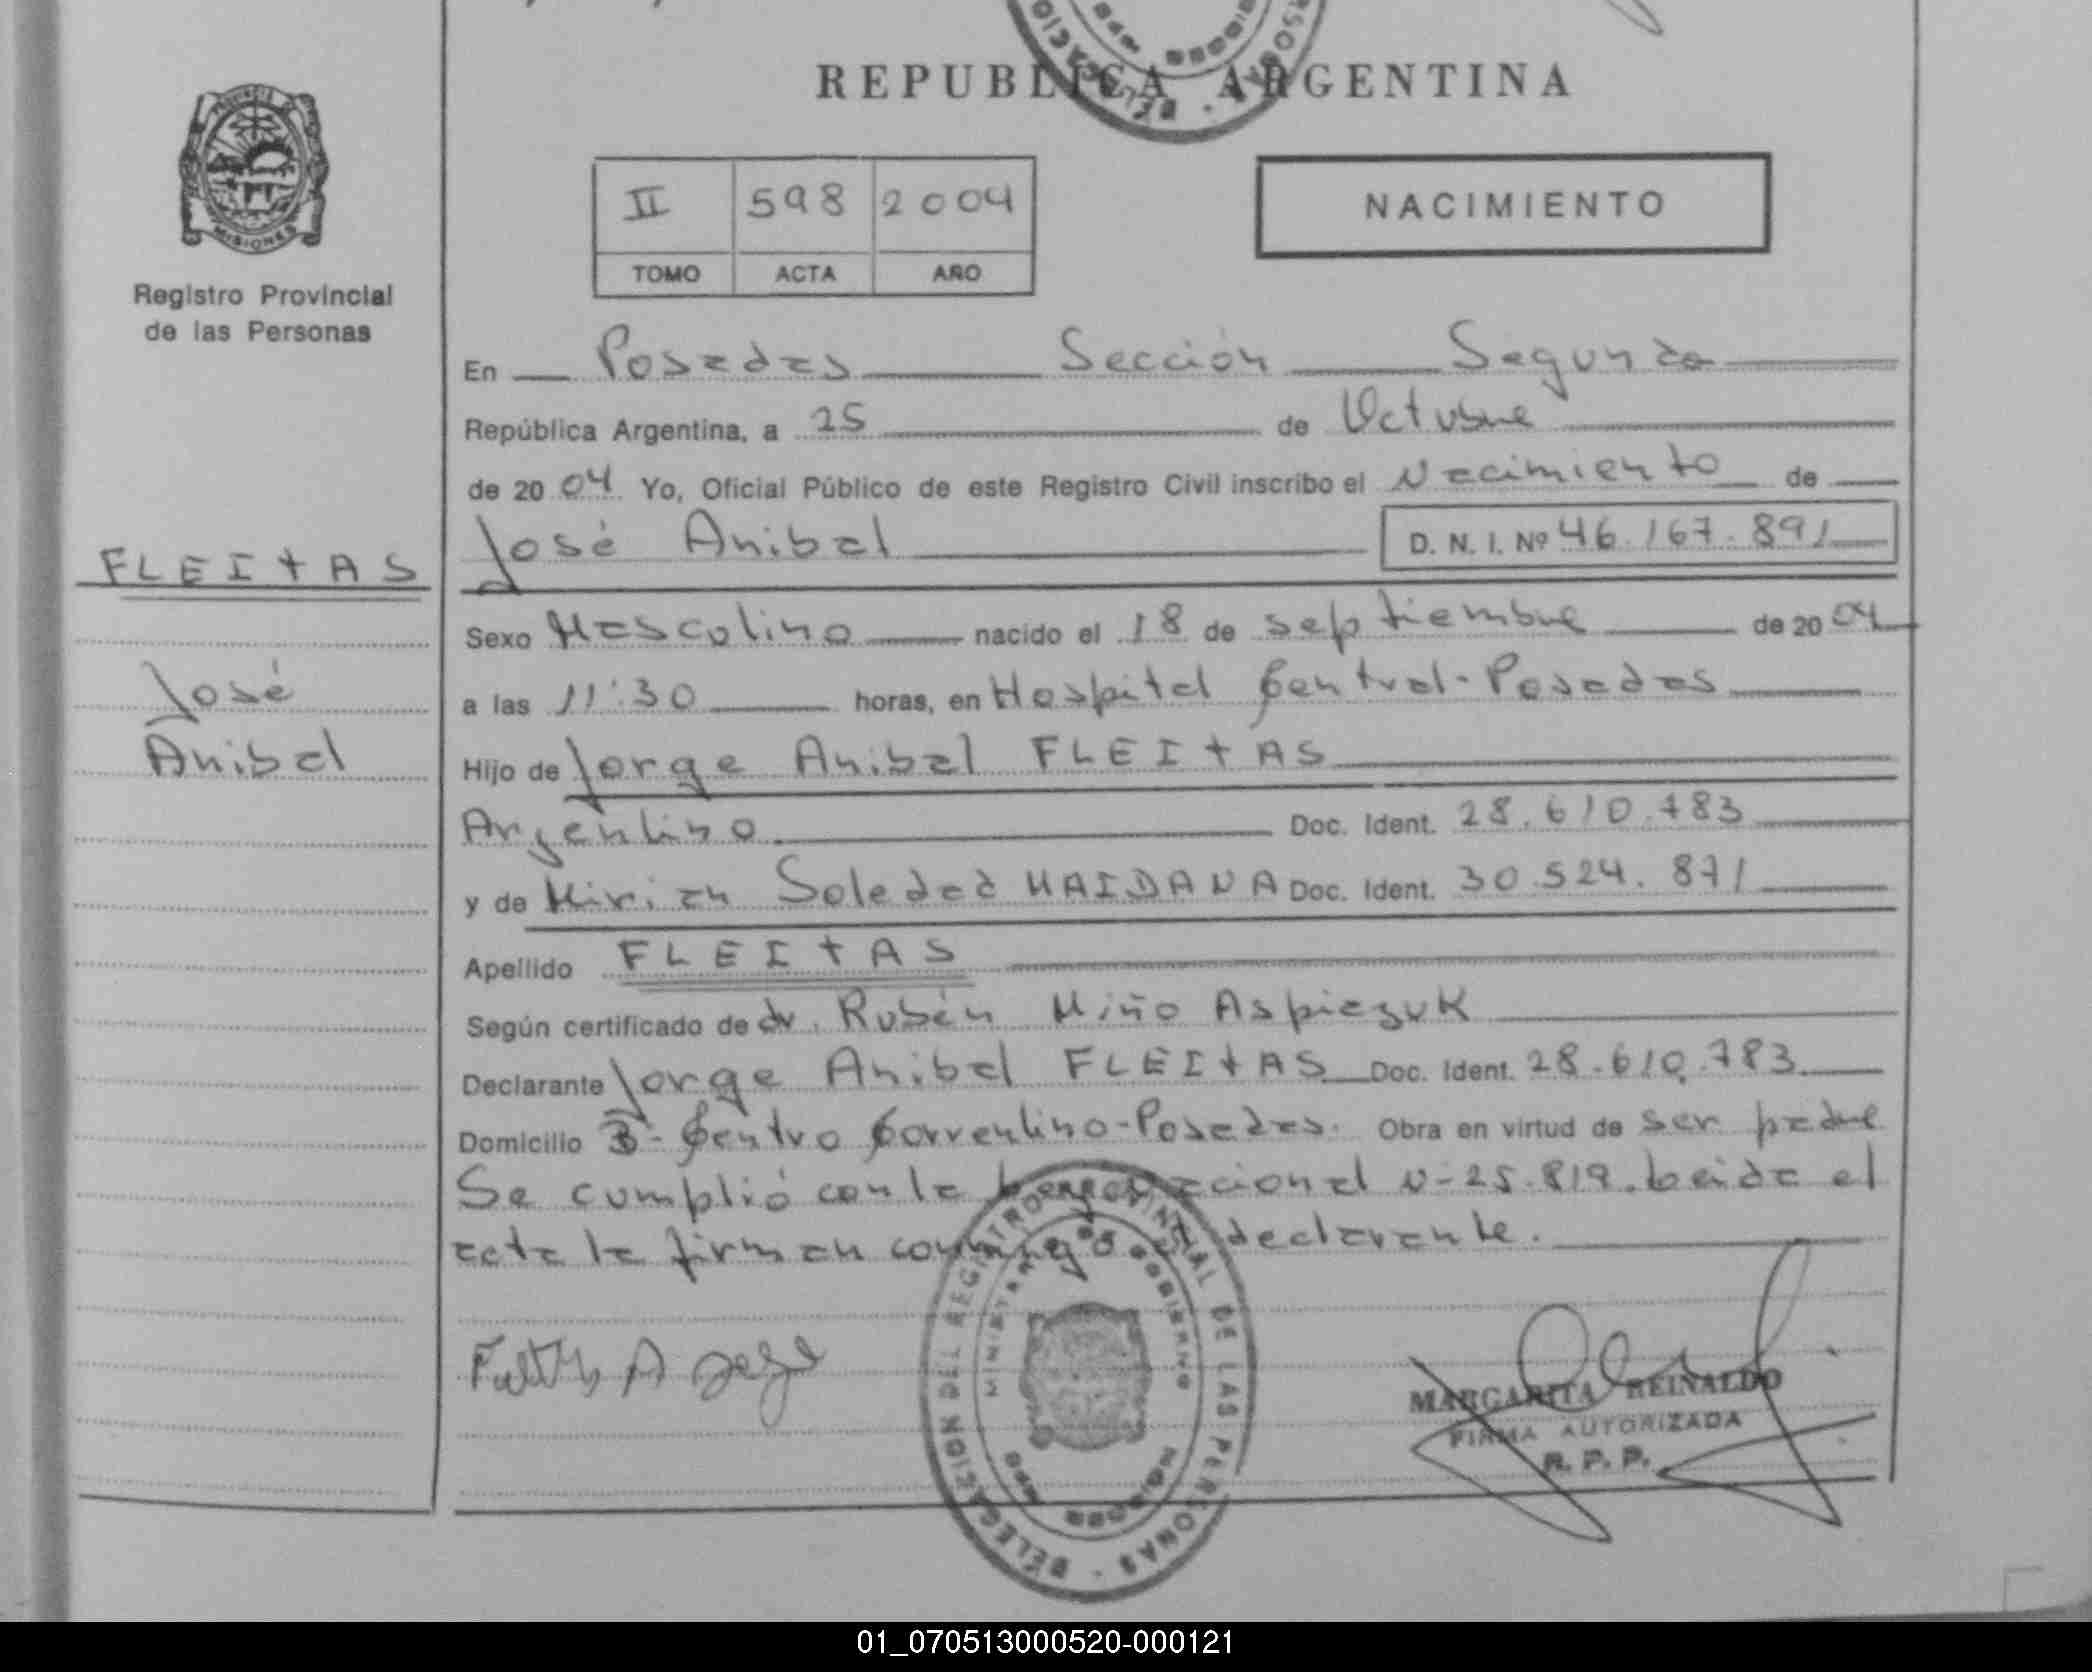 REPUBLICA ARGENTINA
PROVINCIA DE
MISIONES
Registro Provincial
de las Personas
II 598 2004
TOMO ACTA AÑO
NACIMIENTO
En Posadas Sección Segunda
República Argentina, a 25 de Octubre
de 2004 Yo, Oficial Público de este Registro Civil inscribo el Nacimiento de
José Anibal D. N. I. Nº 46.167.891
FLEITAS
José
Anibal
Sexo Masculino nacido el 18 de septiembre de 2004
a las 11:30 horas, en Hospital Central-Posadas
Hijo de Jorge Anibal FLEITAS
Argentino Doc. Ident. 28.610.783
y de Mirian Soledad MAIDANA Doc. Ident. 30.524.871
Apellido FLEITAS
Según certificado de dr. Rubén Miño Aspiazuk
Declarante Jorge Anibal FLEITAS Doc. Ident. 28.610.783
Domicilio B- Centro Correntino-Posadas. Obra en virtud de ser padre
Se cumplió con la Ley Nacional N-25.819. Leida el
acta la firman conmigo el declarante.
DELEGACION DEL REGISTRO PROVINCIAL DE LAS PERSONAS
MINISTERIO DE GOBIERNO
MISIONES
MARGARITA REINALDO
FIRMA AUTORIZADA
R. P. P.
01_070513000520-000121